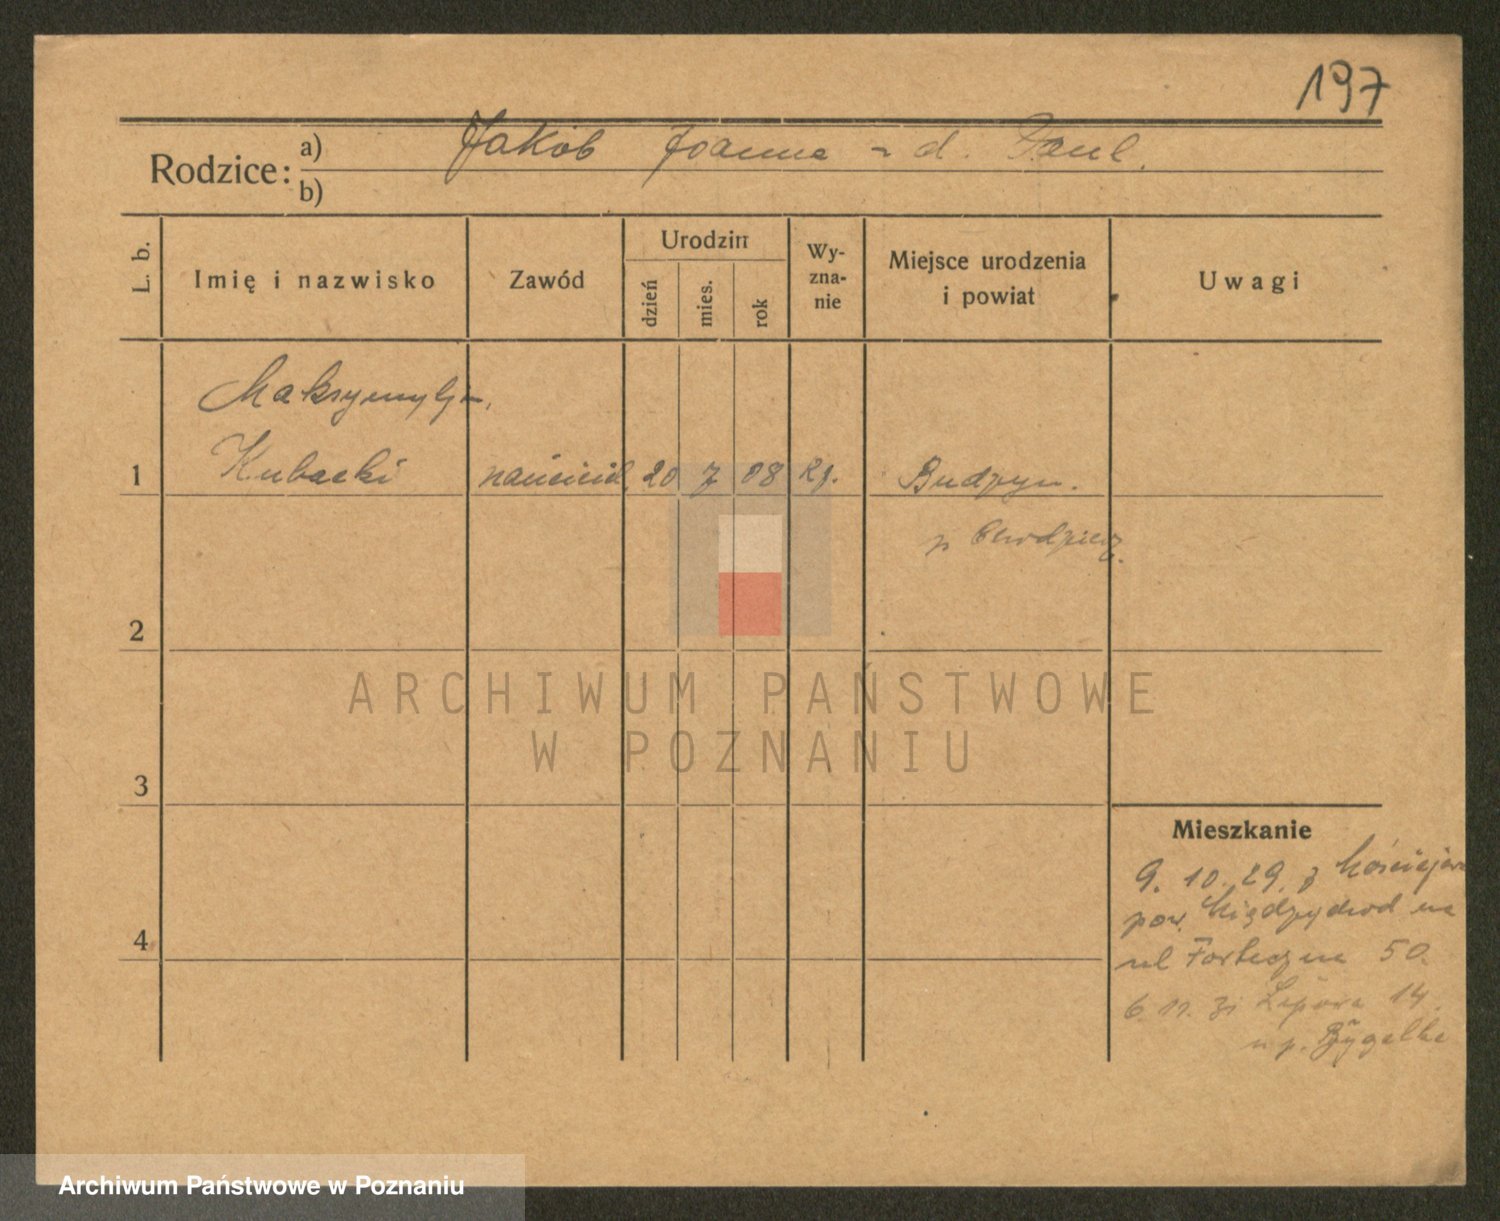 197
Rodzice: a) Jakób Joanna - d. Paul.
b)
L. b. Imię i nazwisko Zawód Urodzin dzień mies. rok Wyznanie Miejsce urodzenia i powiat Uwagi
Maksymylj
1 Kubacki nauciciel 20 7 08 Rz. Budzyn.
p Chodzież.
2
ARCHIWUM PAŃSTWOWE
W POZNANIU
3
Mieszkanie
9. 10. 29. z
pow. Międzychód na
4
ul Forteczna 50.
6. 12. Lipowa 14
u p.
Archiwum Państwowe w Poznaniu